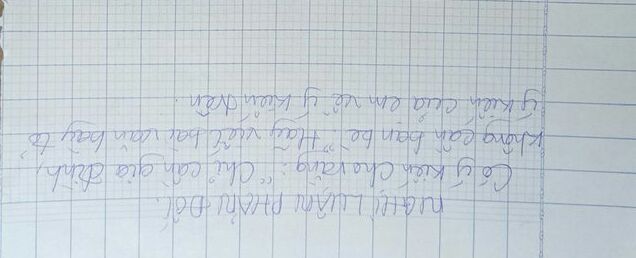 NGHỊ LUẬN PHẢN ĐỐI.
Có ý kiến cho rằng: "Chỉ cần gia đình,
không cần bạn bè". Hãy viết bài văn bày tỏ
ý kiến của em về ý kiến trên.